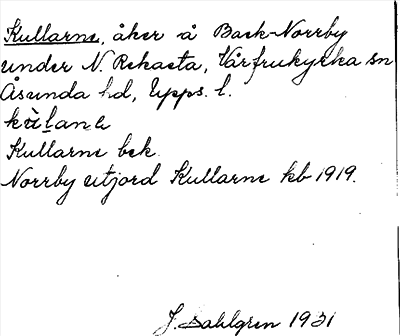 Kullarne, åker å Back-Norrby
under N. Rekasta, Vårfrukyrka sn
Åsunda hd, Upps. l.
Kullarne bek.
Norrby utjord Kullarne kb 1919.
J. Sahlgren 1931